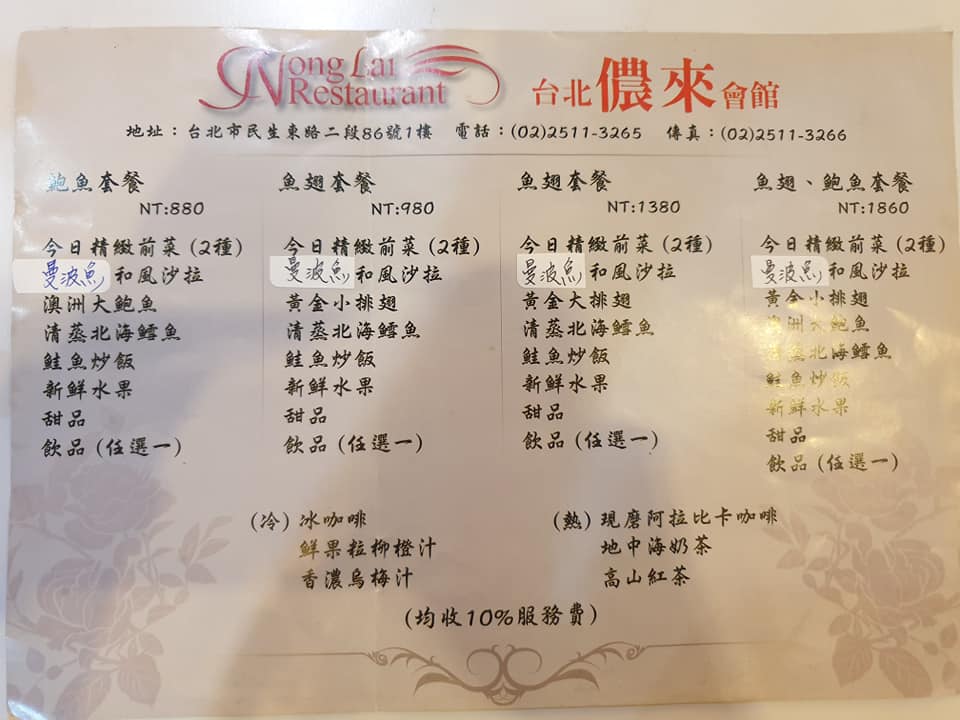 Nong Lai
Restaurant
台北儂來會館
地址：台北市民生東路二段86號1樓 電話：(02)2511-3265 傳真：(02)2511-3266
鮑魚套餐
NT:880
今日精緻前菜(2種)
曼波魚和風沙拉
澳洲大鮑魚
清蒸北海鱈魚
鮭魚炒飯
新鮮水果
甜品
飲品(任選一)
魚翅套餐
NT:980
今日精緻前菜(2種)
曼波魚和風沙拉
黃金小排翅
清蒸北海鱈魚
鮭魚炒飯
新鮮水果
甜品
飲品(任選一)
魚翅套餐
NT:1380
今日精緻前菜(2種)
曼波魚和風沙拉
黃金大排翅
清蒸北海鱈魚
鮭魚炒飯
新鮮水果
甜品
飲品(任選一)
魚翅、鮑魚套餐
NT:1860
今日精緻前菜(2種)
曼波魚和風沙拉
黃金小排翅
澳洲大鮑魚
清蒸北海鱈魚
鮭魚炒飯
新鮮水果
甜品
飲品(任選一)
(冷)冰咖啡
鮮果粒柳橙汁
香濃烏梅汁
(熱)現磨阿拉比卡咖啡
地中海奶茶
高山紅茶
(均收10%服務費)